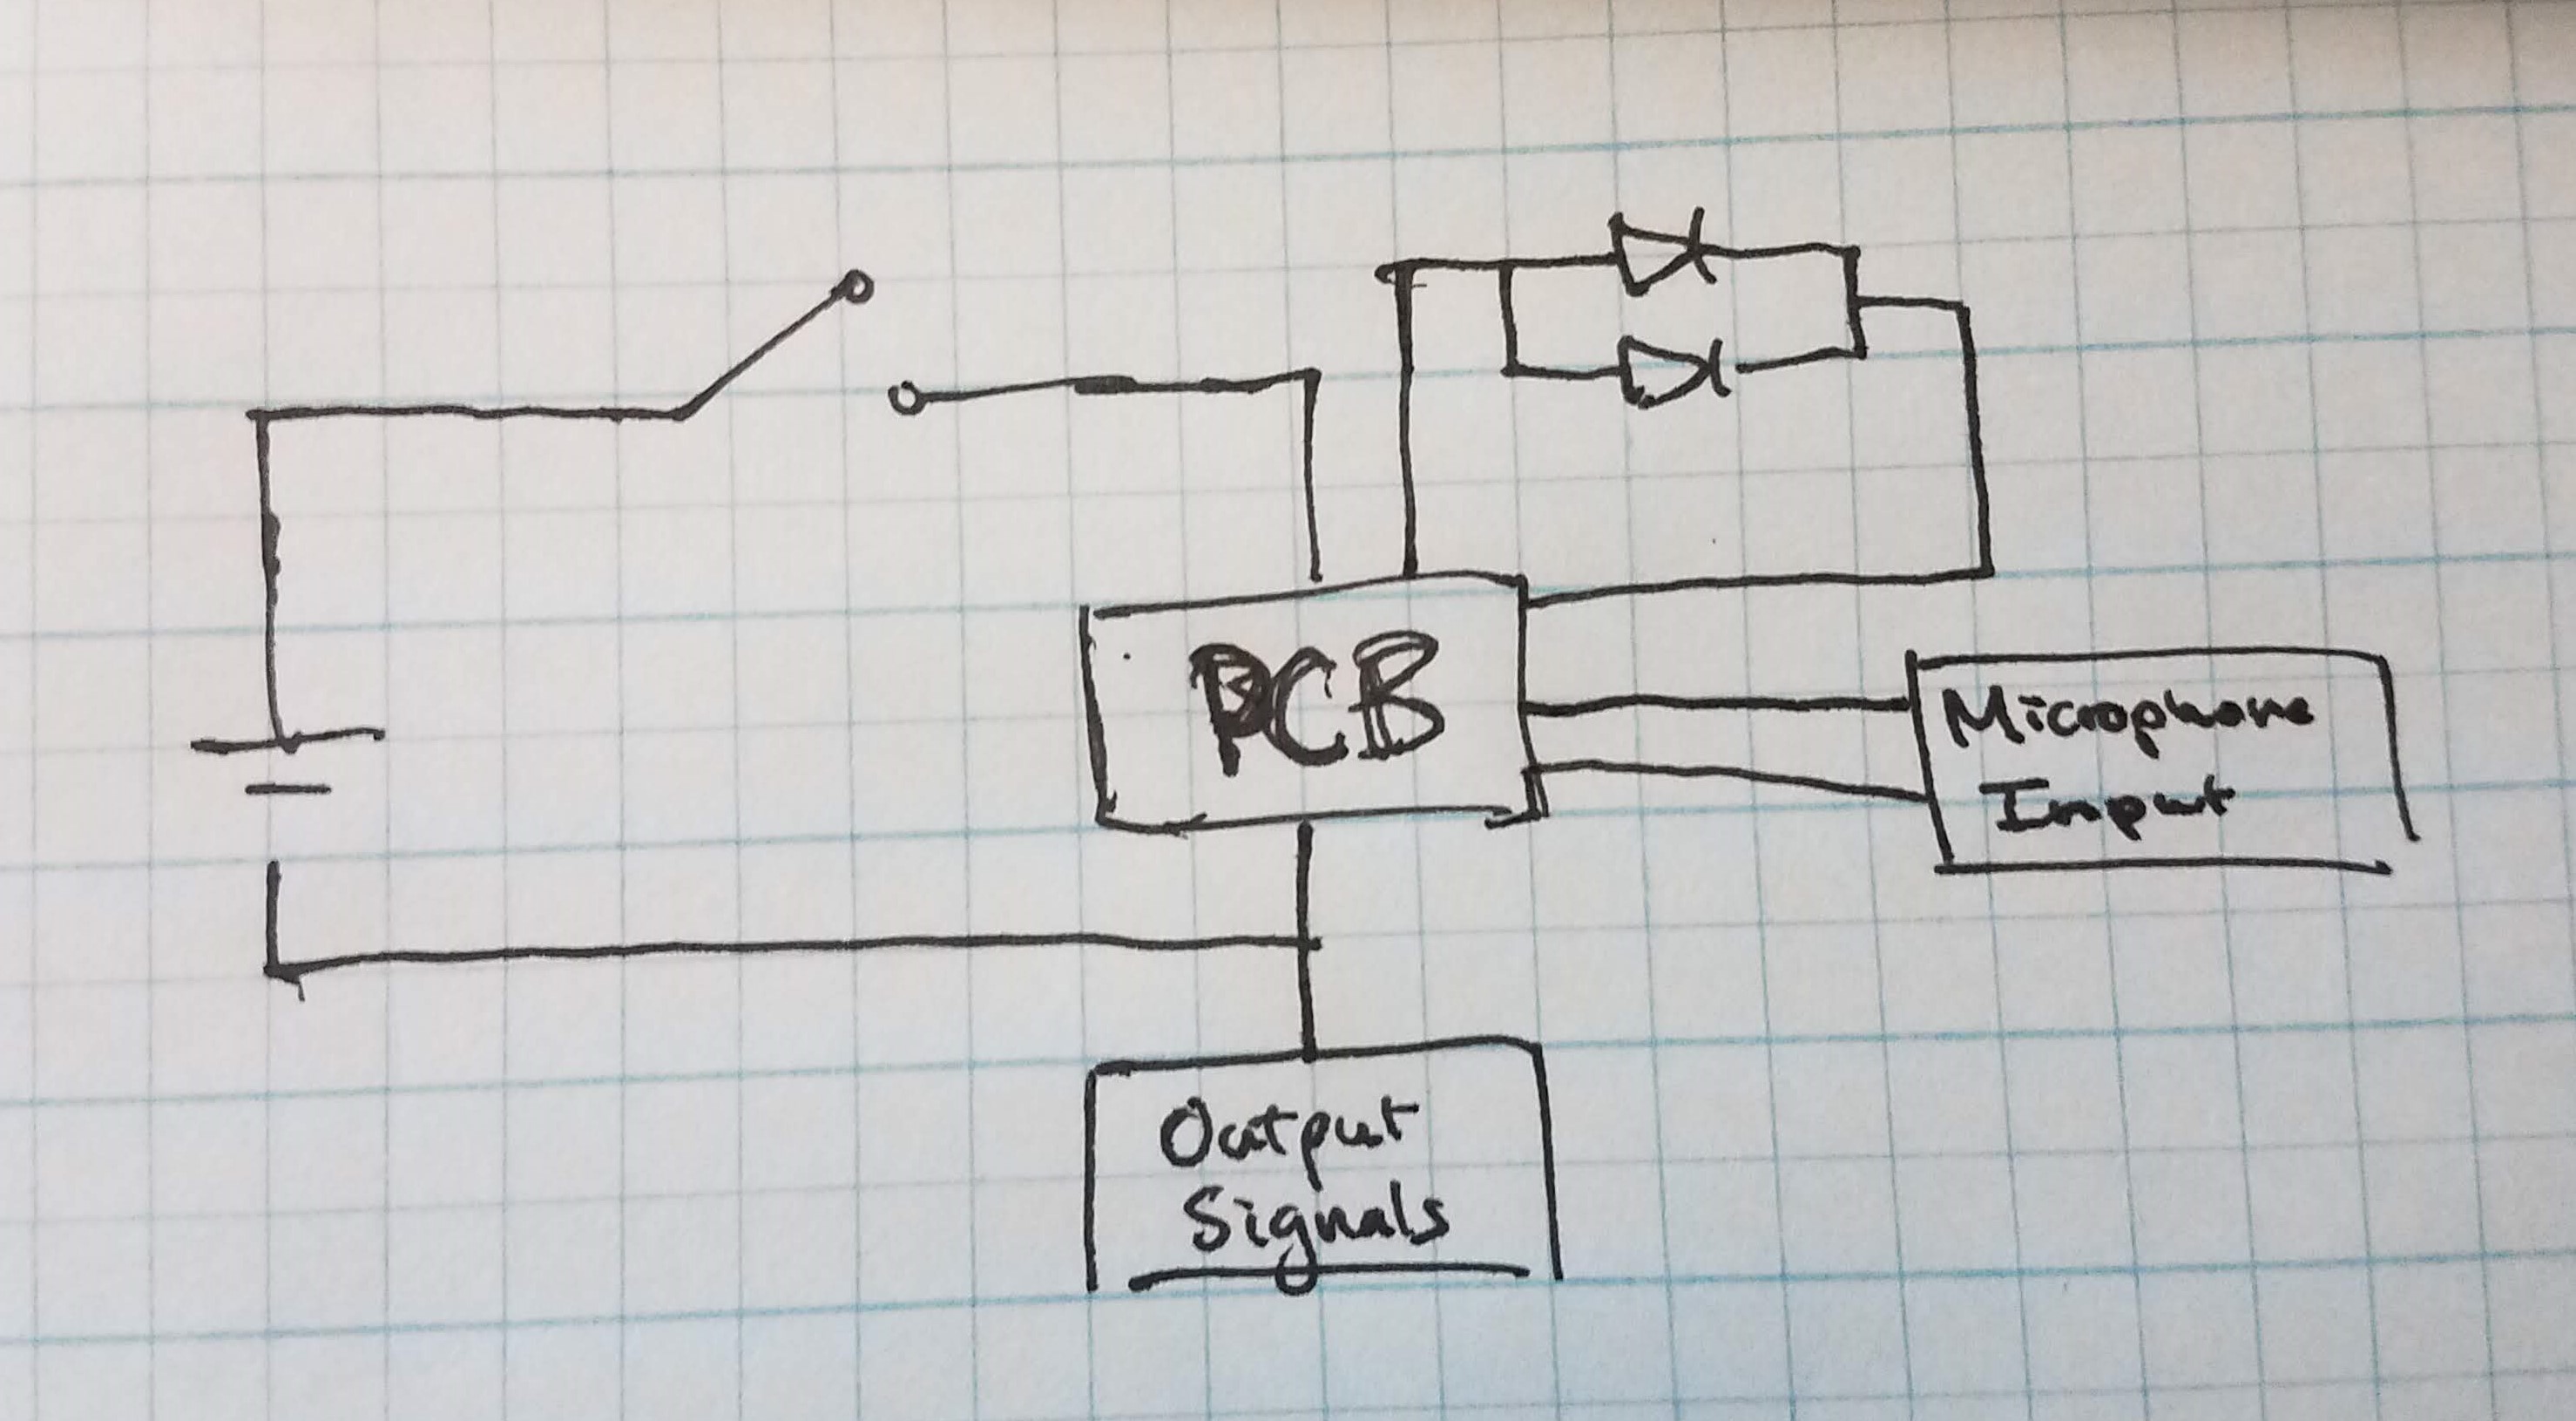 PCB
Microphone
Input
Output
Signals